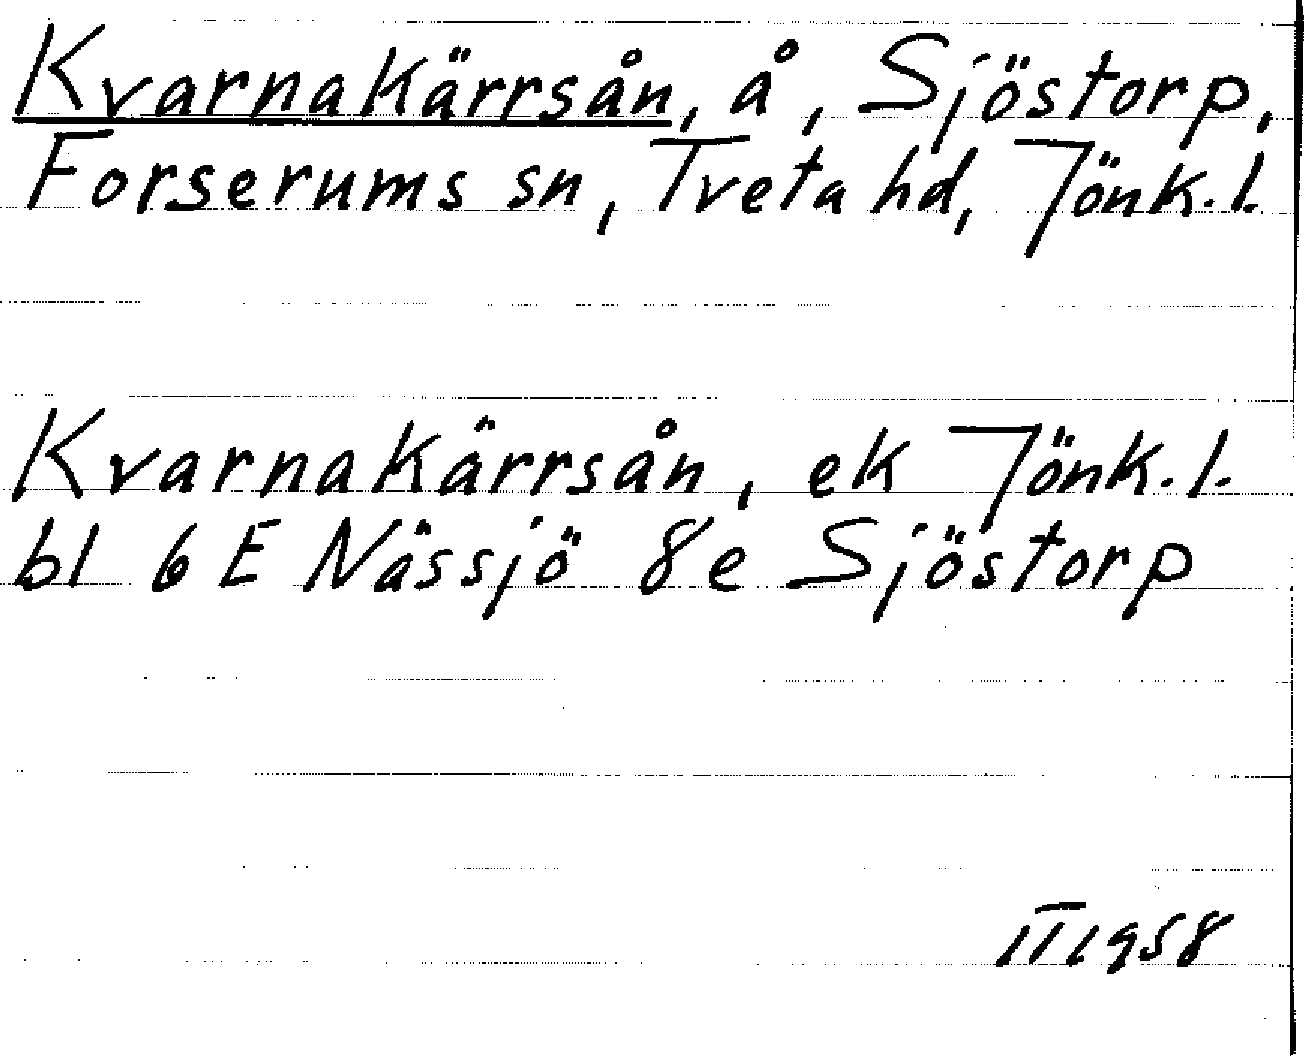 Kvarnakärrsån, å, Sjöstorp,
Forserums sn, Tveta hd, Jönk.l.
Kvarnakärrsån, ek Jönk.l.
bl 6 E Nässjö 8e Sjöstorp